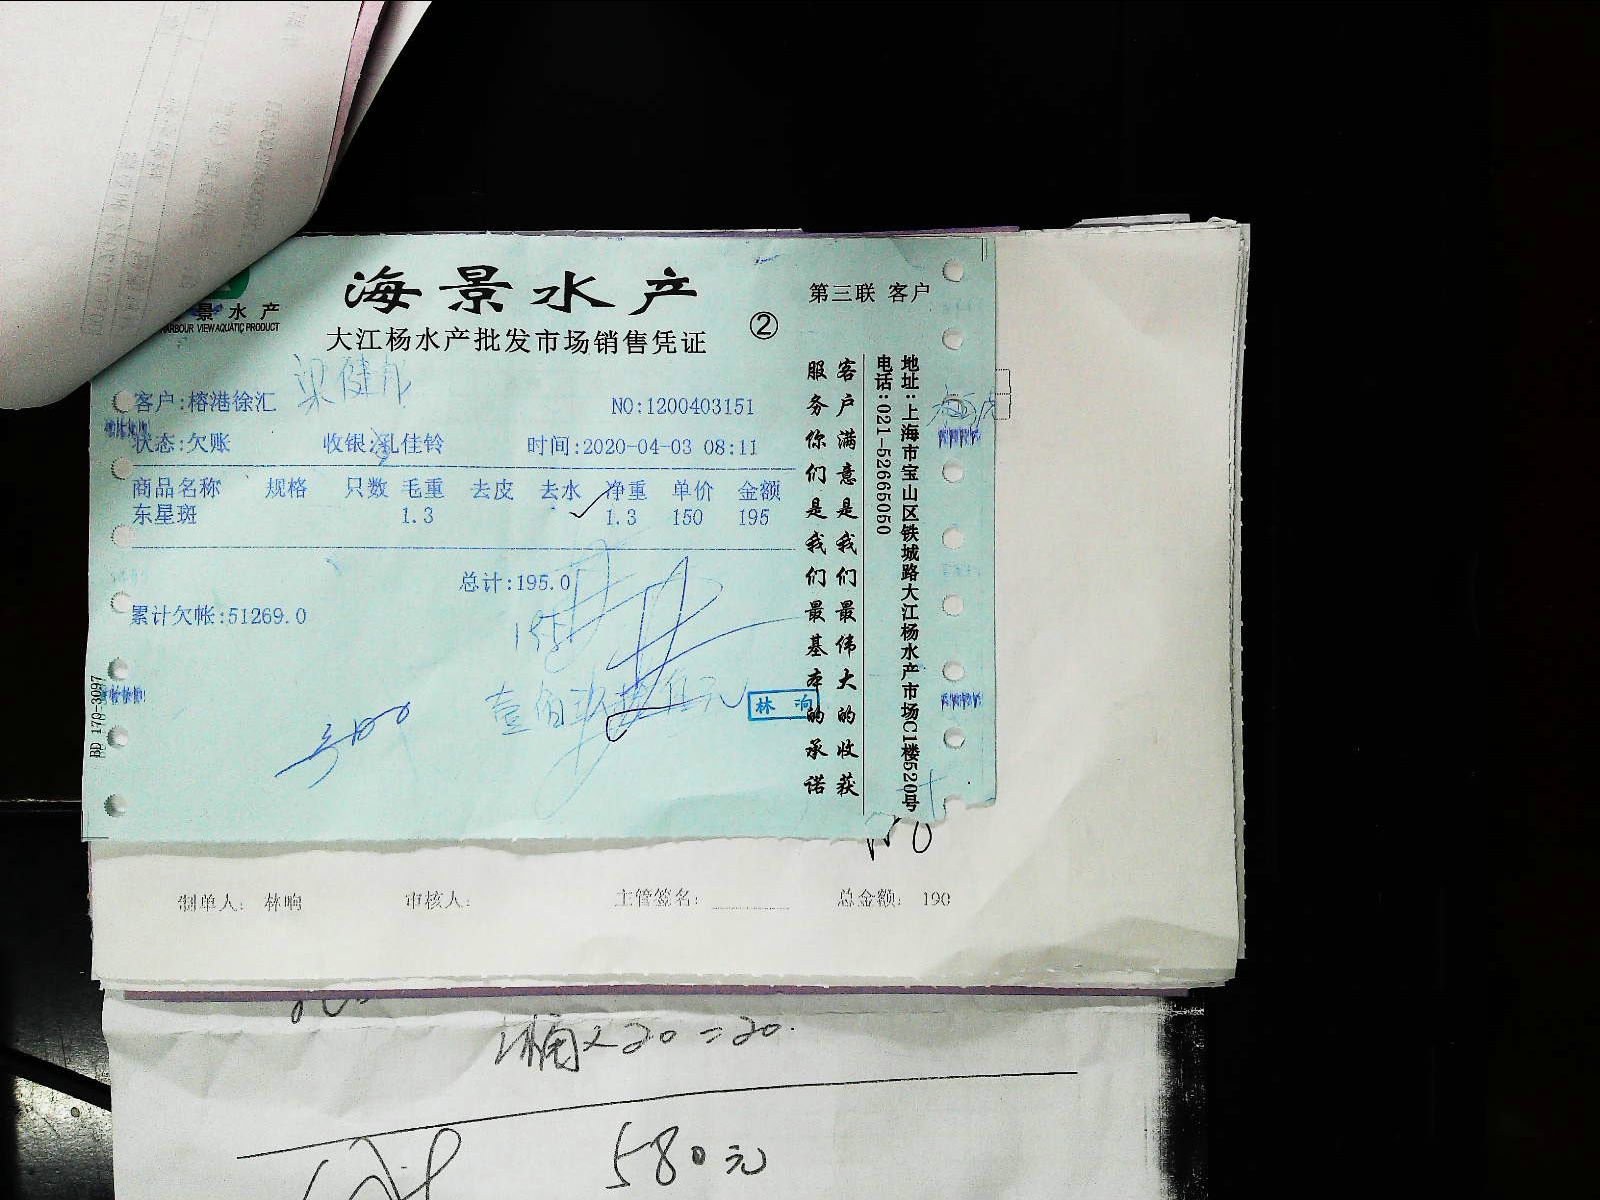 海景水产
第三联 客户
景水产
HARBOUR VIEW AQUATIC PRODUCT
大江杨水产批发市场销售凭证
②
客户:榕港徐汇
NO:1200403151
状态:欠账 收银:孔佳铃 时间:2020-04-03 08:11
商品名称 规格 只数 毛重 去皮 去水 净重 单价 金额
东星斑 1.3 1.3 150 195
总计:195.0
累计欠帐:51269.0
195
林 响
客户满意是我们最伟大的收获
服务你们是我们最基本的承诺
地址:上海市宝山区铁城路大江杨水产市场C1楼520号
电话:021-52665050
BD 170-3097
制单人: 林响 审核人: 主管签名: 总金额: 190
1桶×20=20.
580元